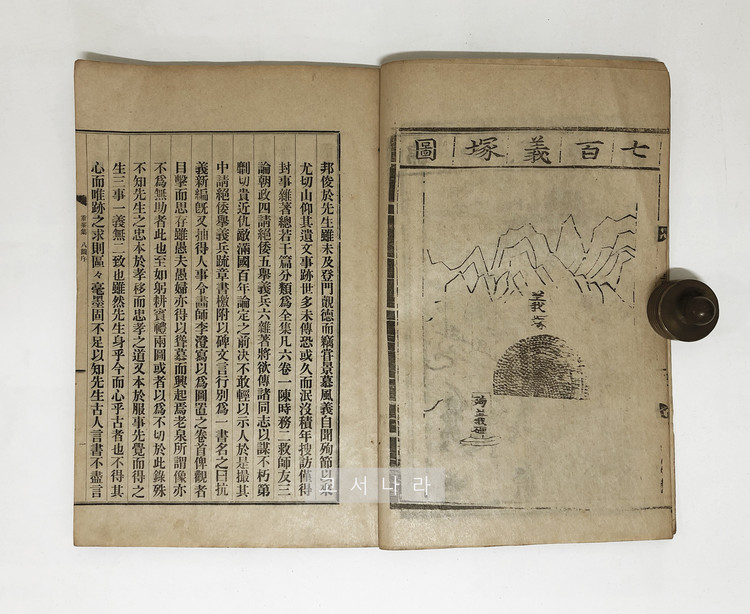 七百義塚圖
義塚
殉義碑
邦俊於先生雖未及登門覿德而竊嘗景慕風義自聞殉節以來
尤切山仰其遺文事跡世多未傳恐或久而泯沒積年搜訪僅得
封事雜著總若干篇分類爲全集凡六卷一陳時務二救師友三
論朝政四請絕倭五舉義兵六雜著將欲傳諸同志以謀不朽第
劘切貴近仇敵滿國百年論定之前決不敢輕以示人於是撮其
中請絕倭舉義兵疏章書檄附以碑文言行別爲一書名之曰抗
義新編旣又抽得人事令畵師李澄寫以爲圖置之卷首俾觀者
目擊而思存雖愚夫愚婦亦得以聳慕而興起焉老泉所謂像亦
不爲無助者此也至如躬耕賓禮兩圖或者以爲不切於此錄殊
不知先生之忠本於孝移而忠孝之道又本於服事先覺而得之
生三事一義無二致也雖然先生身乎今而心乎古者也不得其
心而唯跡之求則區々毫墨固不足以知先生古人言書不盡言
고서나라